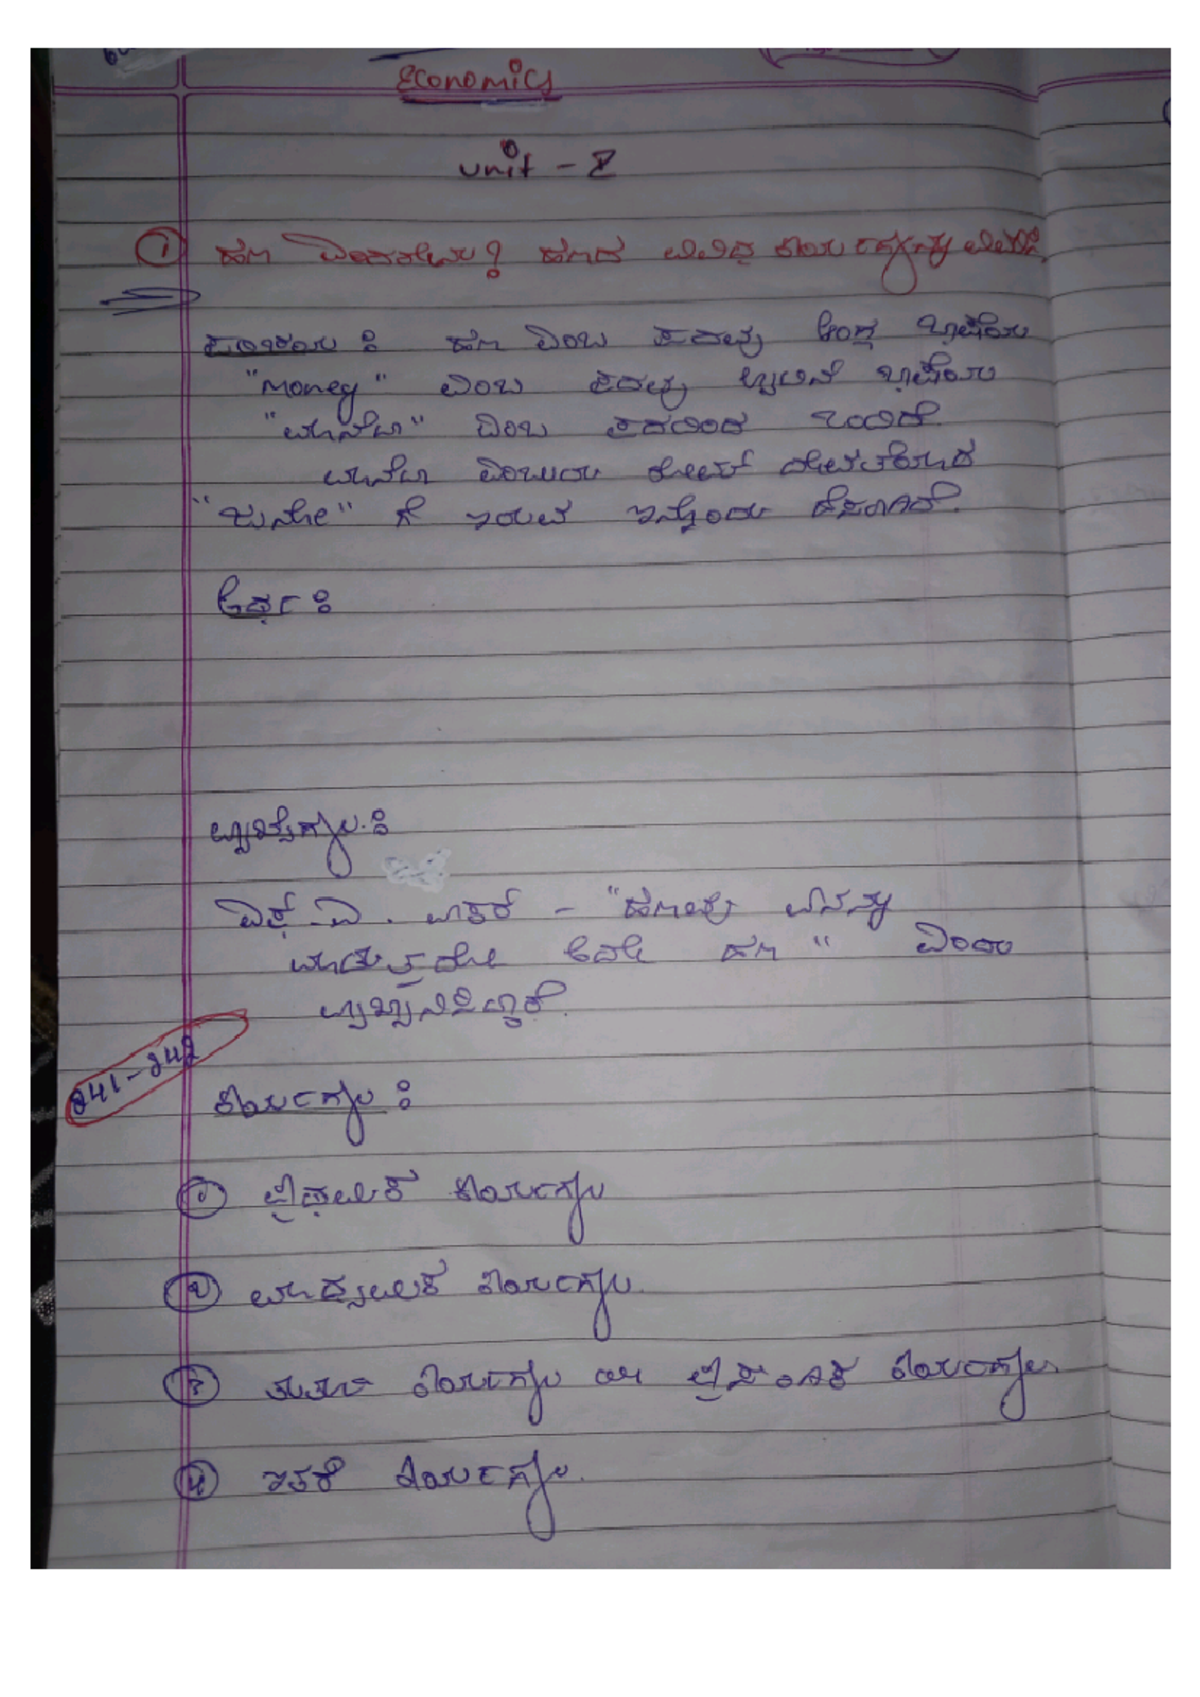 Economics
Unit - I
① ಹಣ ಎಂದರೇನು? ಹಣದ ವಿವಿಧ ಕಾರ್ಯಗಳನ್ನು ವಿವರಿಸಿ.
ಪರಿಚಯ : ಹಣ ಎಂಬ ಪದವು ಆಂಗ್ಲ ಭಾಷೆಯ
"Money" ಎಂಬ ಪದವು ಲ್ಯಾಟಿನ್ ಭಾಷೆಯ
"ಮಾನೆಟಾ" ಎಂಬ ಪದದಿಂದ ಬಂದಿದೆ.
ಮಾನೆಟಾ ಎಂಬುದು ರೋಮ್ ದೇವತೆಯಾದ
"ಜುನೋ" ಗೆ ಇರುವ ಇನ್ನೊಂದು ಹೆಸರಾಗಿದೆ.
ಅರ್ಥ :
ವ್ಯಾಖ್ಯೆಗಳು :
ಎಫ್. ಎ. ವಾಕರ್ - "ಹಣವು ಏನನ್ನು
ಮಾಡುತ್ತದೋ ಅದೇ ಹಣ" ಎಂದು
ವ್ಯಾಖ್ಯಾನಿಸಿದ್ದಾರೆ.
241-242
ಕಾರ್ಯಗಳು :
೧ ಪ್ರಾಥಮಿಕ ಕಾರ್ಯಗಳು
೨ ಮಾಧ್ಯಮಿಕ ಕಾರ್ಯಗಳು.
೩ ಕಾರ್ಯಗಳು ಯಾ ಪ್ರಾಸಂಗಿಕ ಕಾರ್ಯಗಳು.
೪ ಇತರೆ ಕಾರ್ಯಗಳು.